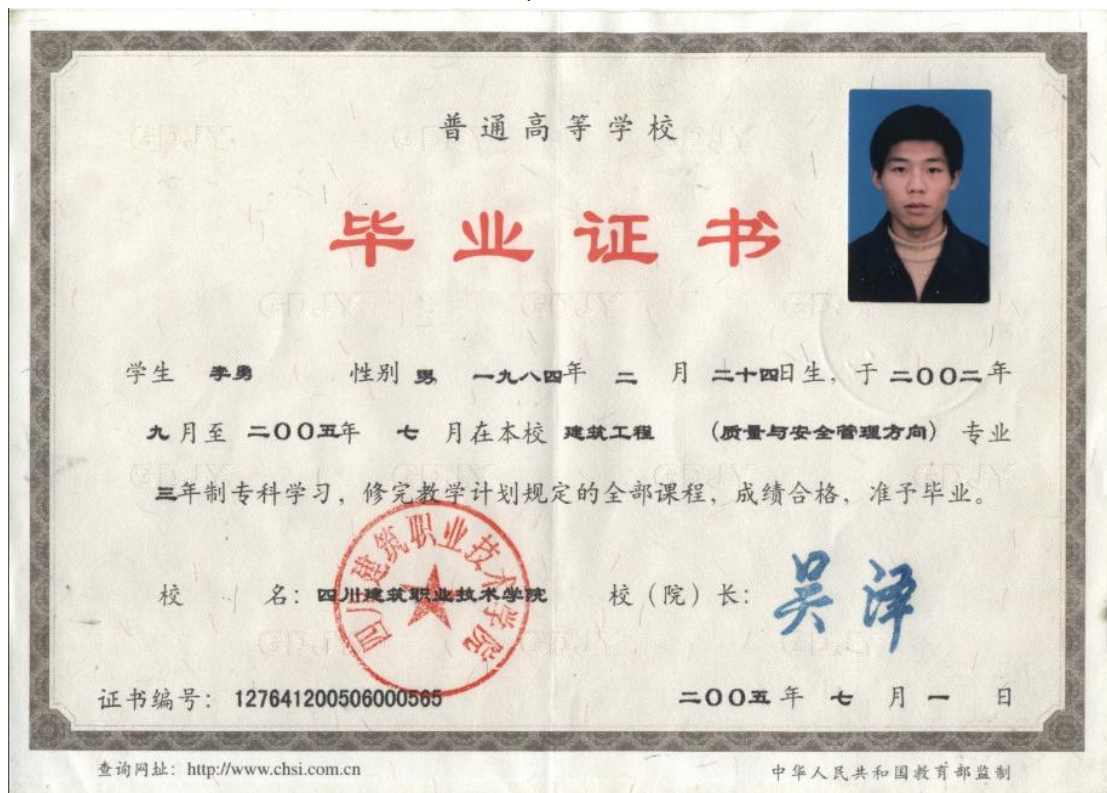 普通高等学校
毕业证书
学生 李勇 性别 男 一九八四年 二 月 二十四日生，于 二〇〇二年
九 月至 二〇〇五年 七 月在本校 建筑工程 （质量与安全管理方向）专业
三年制专科学习，修完教学计划规定的全部课程，成绩合格，准予毕业。
四川建筑职业技术学院
校 名：四川建筑职业技术学院 校（院）长：吴泽
证书编号：127641200506000565 二〇〇五年 七 月 一 日
查询网址：http://www.chsi.com.cn 中华人民共和国教育部监制